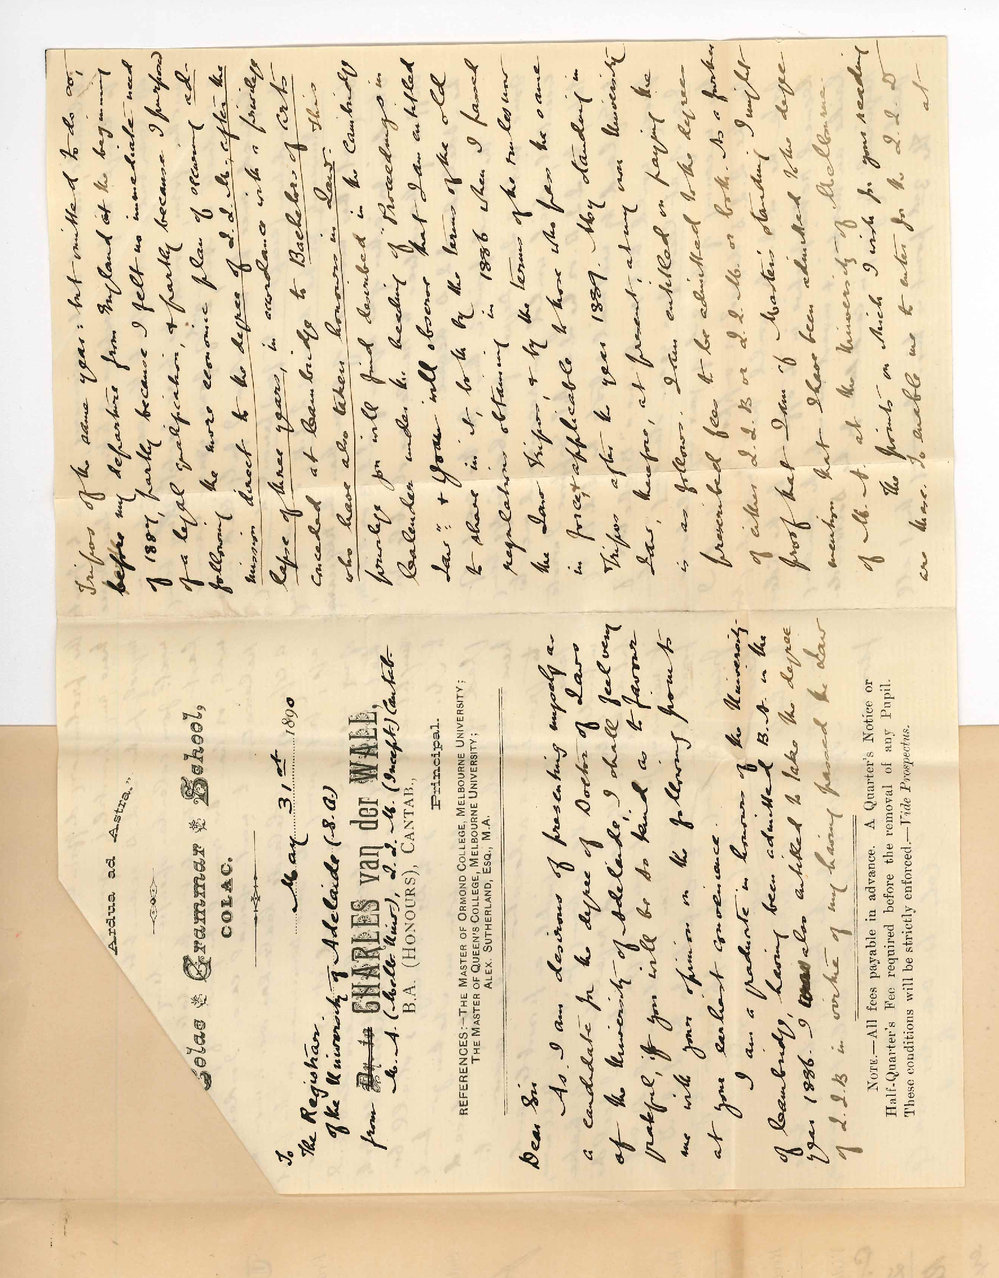 "Ardua ad Astra."
Colac Grammar School,
COLAC.
May 31st 1890
To
The Registrar
of the University of Adelaide (S.A)
from Dr to CHARLES van der WALL,
M.A. (Melb: Univ:), L.L.M. (Incept:) Cantab.
B.A. (HONOURS), CANTAB.,
Principal.
REFERENCES:—THE MASTER OF ORMOND COLLEGE, MELBOURNE UNIVERSITY;
THE MASTER OF QUEEN'S COLLEGE, MELBOURNE UNIVERSITY;
ALEX. SUTHERLAND, ESQ., M.A.
Dear Sir
As I am desirous of presenting myself as
a candidate for the degree of Doctor of Laws
of the University of Adelaide, I shall feel very
grateful, if you will be so kind as to favour
me with your opinion on the following points
at your earliest convenience.
I am a graduate in honours of the University
of Cambridge, having been admitted B.A. in the
year 1886. I was also entitled to take the degree
of L.L.B in virtue of my having passed the Law
NOTE.—All fees payable in advance. A Quarter's Notice or
Half-Quarter's Fee required before the removal of any Pupil.
These conditions will be strictly enforced.—Vide Prospectus.
Tripos of the same year: but omitted to do so,
before my departure from England at the beginning
of 1887, partly because I felt no immediate need
of a legal qualification, & partly because I purposed
following the more economic plan of securing ad-
mission direct to the degree of L.L.M. after the
lapse of three years, in accordance with a privilege
conceded at Cambridge to Bachelors of Arts
who have also taken honours in Law. This
privilege you will find described in the Cambridge
Calendar under the heading of "Proceedings in
Law": & you will observe that I am entitled
to share in it, both by the terms of the old
regulations obtaining in 1886 when I passed
the Law Tripos, & by the terms of the rules now
in force & applicable to those who pass the same
Tripos after the year 1889. My standing in
Law, therefore, at present, at my own University
is as follows. I am entitled on paying the
prescribed fees to be admitted to the degree
of either L.L.B or L.L.M. or both. As a further
proof that I am of Master's standing I might
mention that I have been admitted to the degree
of M.A. at the University of Melbourne.
The points on which I wish for your reading
are these. To enable me to enter for the L.L.D
at